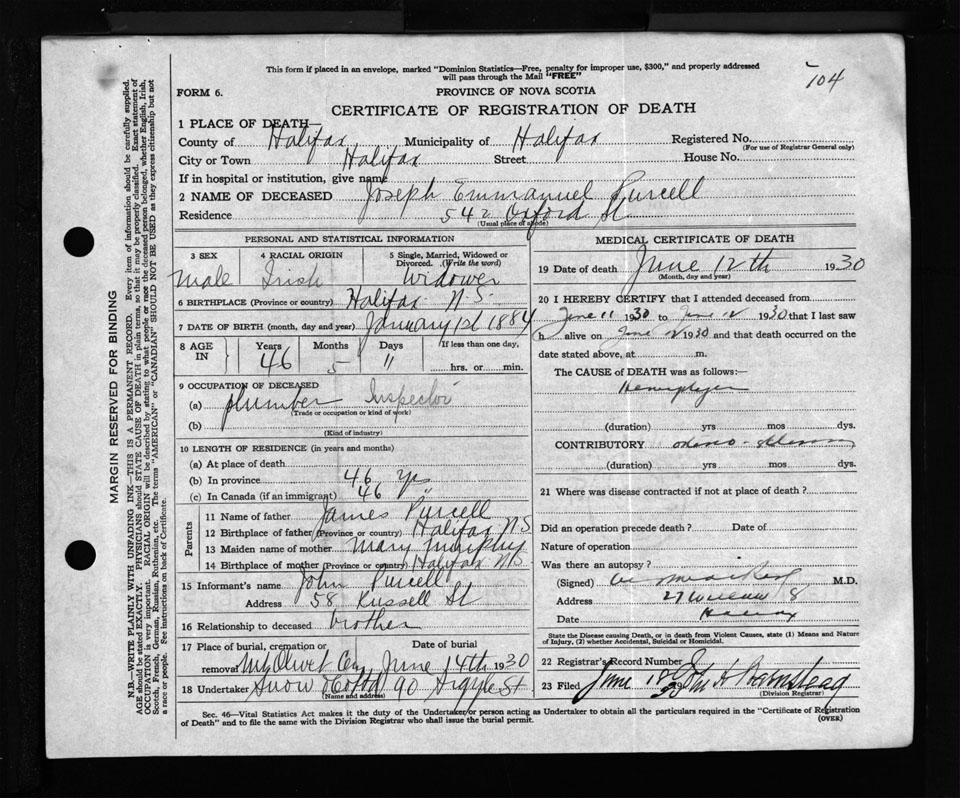 This form if placed in an envelope, marked "Dominion Statistics—Free, penalty for improper use, $300," and properly addressed
will pass through the Mail "FREE"
104
FORM 6.
PROVINCE OF NOVA SCOTIA
CERTIFICATE OF REGISTRATION OF DEATH
1 PLACE OF DEATH—
County of Halifax Municipality of Halifax Registered No.
(For use of Registrar General only)
City or Town Halifax Street House No.
If in hospital or institution, give name
2 NAME OF DECEASED Joseph Emmanuel Purcell
Residence 542 Oxford St
(Usual place of abode)
PERSONAL AND STATISTICAL INFORMATION
3 SEX 4 RACIAL ORIGIN 5 Single, Married, Widowed or Divorced. (Write the word)
Male Irish Widower
6 BIRTHPLACE (Province or country) Halifax N.S.
7 DATE OF BIRTH (month, day and year) January 1st 1884
8 AGE IN Years 46 Months 5 Days 11 If less than one day, hrs. or min.
9 OCCUPATION OF DECEASED
(a) plumber Inspector
(Trade or occupation or kind of work)
(b)
(Kind of industry)
10 LENGTH OF RESIDENCE (in years and months)
(a) At place of death
(b) In province 46 yrs
(c) In Canada (if an immigrant) 46 "
Parents
11 Name of father James Purcell
12 Birthplace of father (Province or country) Halifax N.S
13 Maiden name of mother Mary Murphy
14 Birthplace of mother (Province or country) Halifax N.S.
15 Informant's name John Purcell
Address 58 Russell St
16 Relationship to deceased brother
17 Place of burial, cremation or removal Mt Olivet Cem Date of burial June 14th 1930
18 Undertaker Snow & Co Ltd 90 Argyle St
(Name and address)
MEDICAL CERTIFICATE OF DEATH
19 Date of death June 12th 1930
(Month, day and year)
20 I HEREBY CERTIFY that I attended deceased from
June 11 1930 to June 12 1930 that I last saw
h alive on June 12 1930 and that death occurred on the
date stated above, at m.
The CAUSE of DEATH was as follows:—
(duration) yrs mos dys.
CONTRIBUTORY
(duration) yrs mos dys.
21 Where was disease contracted if not at place of death ?
Did an operation precede death? Date of
Nature of operation
Was there an autopsy ?
(Signed) M.D.
Address 27
Date
State the Disease causing Death, or in death from Violent Causes, state (1) Means and Nature
of Injury, (2) whether Accidental, Suicidal or Homicidal.
22 Registrar's Record Number
23 Filed June
(Division Registrar)
Sec. 46—Vital Statistics Act makes it the duty of the Undertaker/or person acting as Undertaker to obtain all the particulars required in the "Certificate of Registration
of Death" and to file the same with the Division Registrar who shall issue the burial permit.
(OVER)
MARGIN RESERVED FOR BINDING
N.B.—WRITE PLAINLY WITH UNFADING INK—THIS IS A PERMANENT RECORD. Every item of information should be carefully supplied.
AGE should be stated EXACTLY. PHYSICIANS should STATE CAUSE OF DEATH in plain terms, so that it may be properly classified. Exact statement of
OCCUPATION is very important. RACIAL ORIGIN will be described by stating to what people or race the deceased person belonged, whether English, Irish,
Scotch, French, German, Russian, Ruthenian, etc. The terms "AMERICAN" or "CANADIAN" SHOULD NOT BE USED as they express citizenship but not
a race or people. See instructions on back of Certificate.